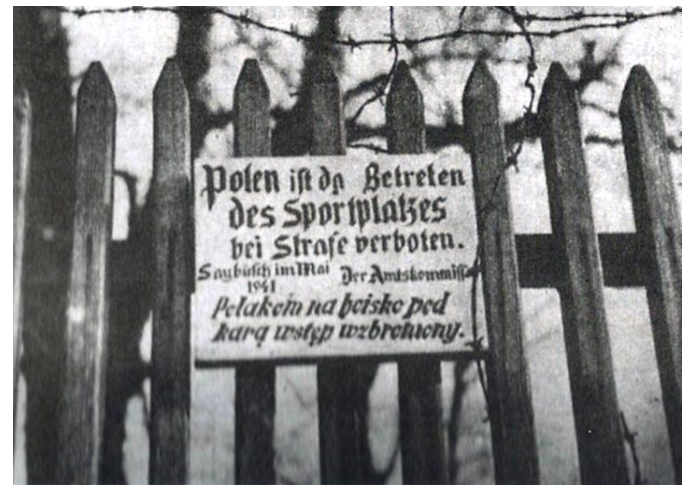 Polen ist das Betreten
des Sportplatzes
bei Strafe verboten.
Saybusch im Mai Der Amtskommissar
1941
Polakom na boisko pod
karą wstęp wzbroniony.